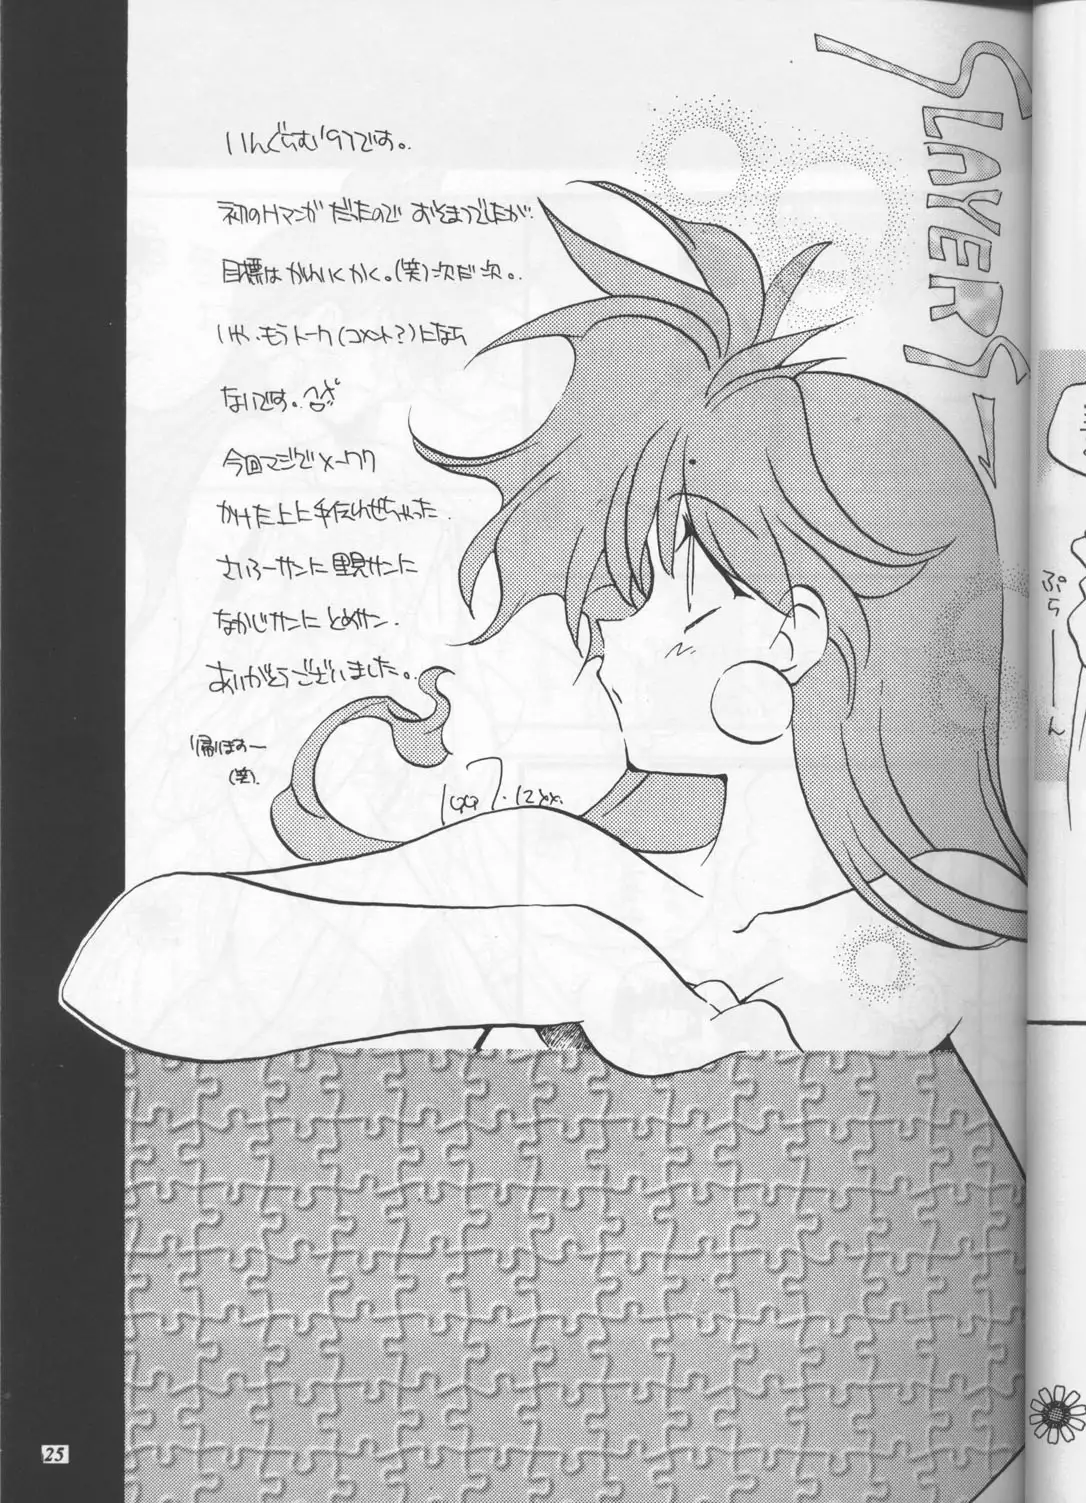 SLAYERS
いんぐらむ'97です。
初のHマンガだったので おそまつでしたが
目標はかわいくかく。(笑)次だ次。
いや、もうトーク(コメント?)になら
ないです。
今回マジでメーワク
かけた上に手伝わせちゃった
さいろーサンに里見サンに
なかじサンに とめサン.
ありがとうございました。
(笑).
1997.12xx.
ぷらーーん
25